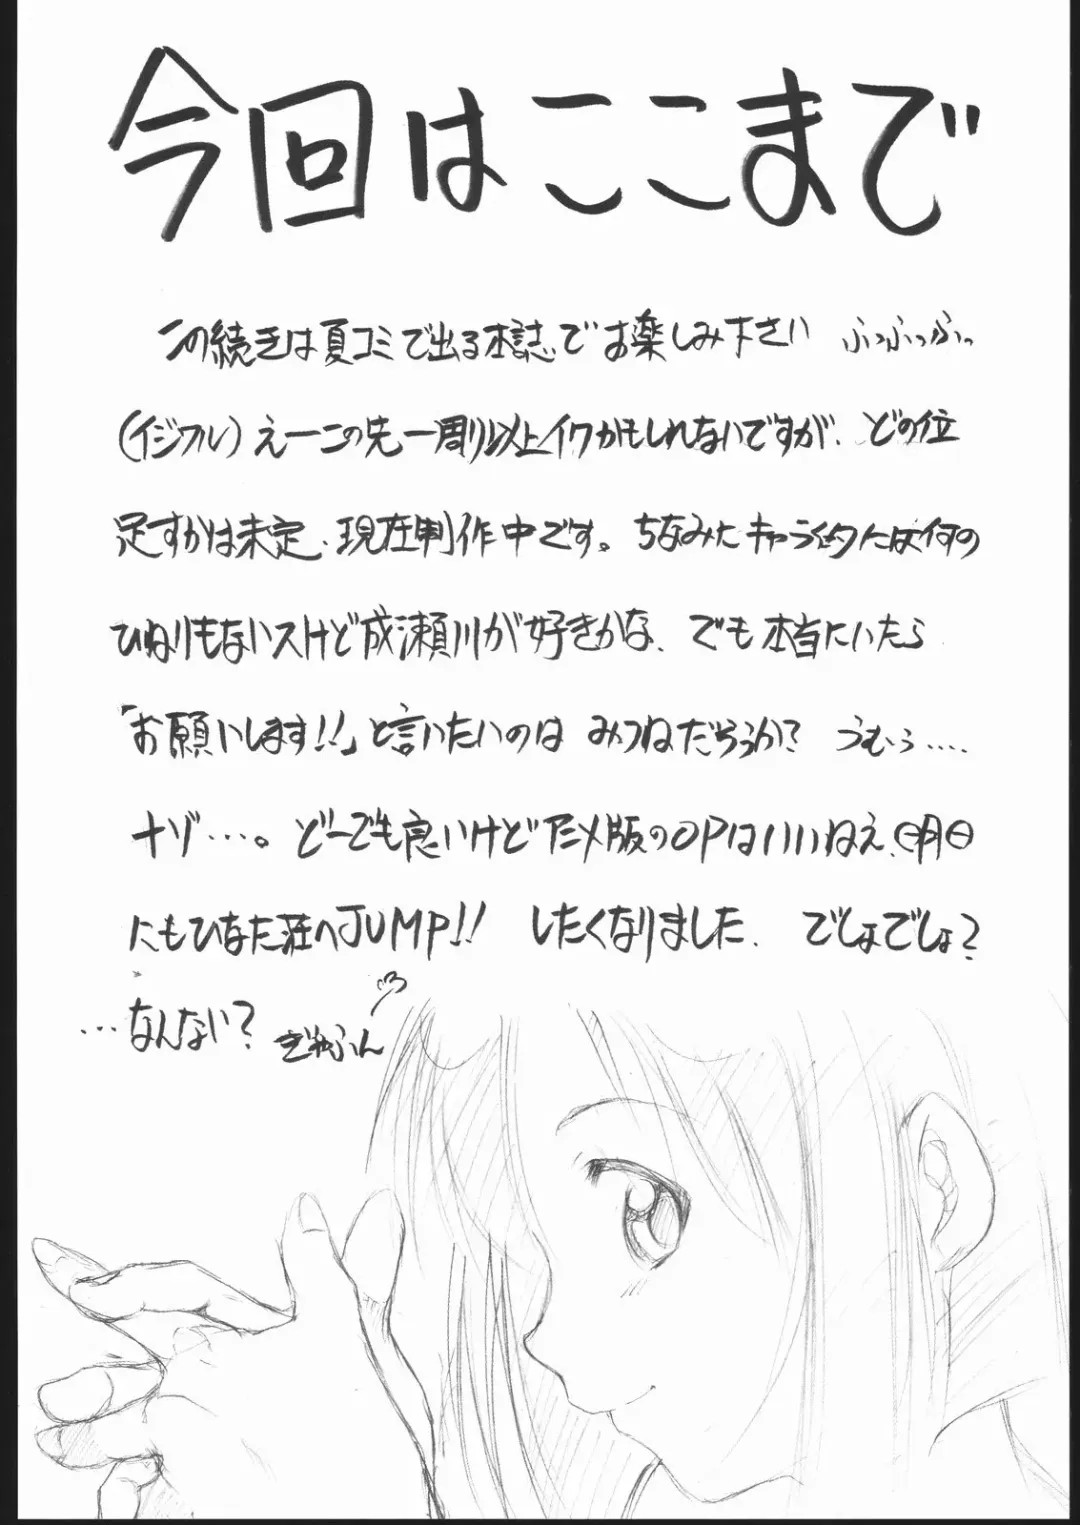 今回はここまで
この続きは夏コミで出る本誌でお楽しみ下さい ふっふっふっ
(イジワル)えーこの先一周り以上イクかもしれないですが、どの位
足すかは未定、現在制作中です。ちなみにキャラ的には何の
ひねりもないスけど成瀬川が好きかな、でも本当にいたら
「お願いします!!」と言いたいのは みつねだろうか? うむぅ....
ナゾ...。どーでも良いけどアニメ版のOPはいいねえ、明日
にもひなた荘へJUMP!! したくなりました、でしょでしょ?
...なんない? ぎゃふん